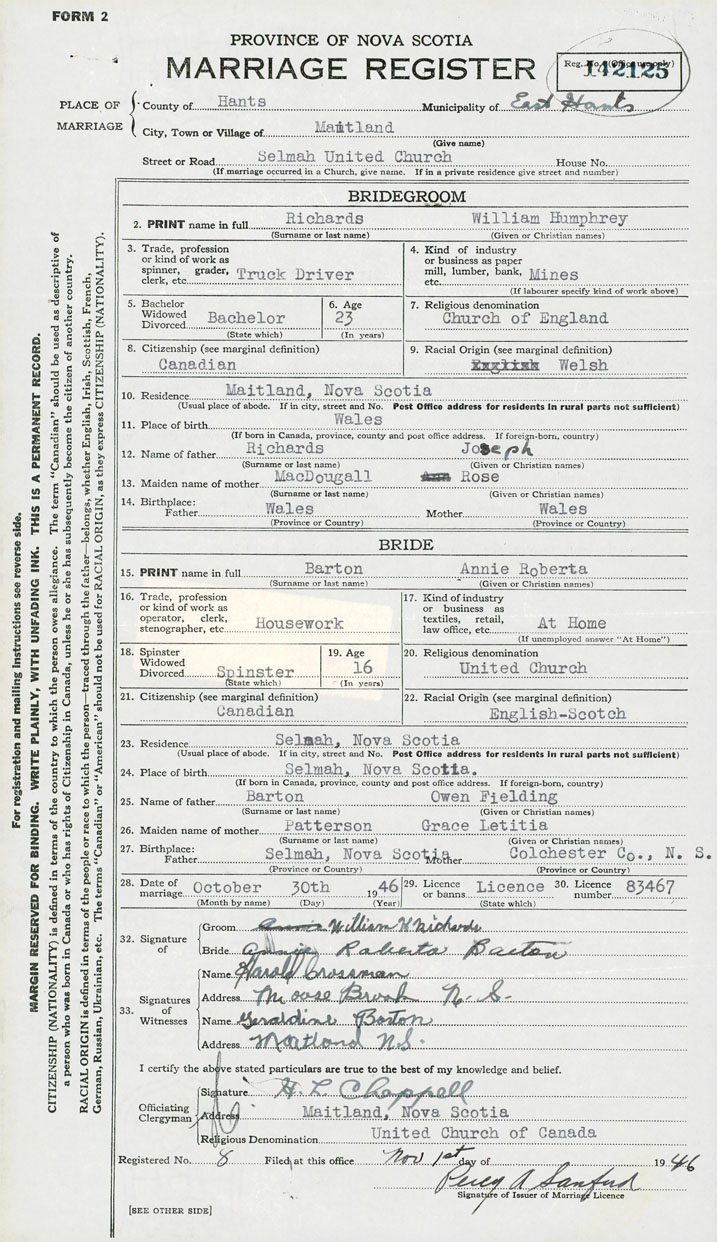 FORM 2
PROVINCE OF NOVA SCOTIA
MARRIAGE REGISTER
Reg. No. (Office use only)
142125
PLACE OF MARRIAGE
County of Hants Municipality of East Hants
City, Town or Village of Maitland
(Give name)
Street or Road Selmah United Church House No.
(If marriage occurred in a Church, give name. If in a private residence give street and number)
BRIDEGROOM
2. PRINT name in full Richards William Humphrey
(Surname or last name) (Given or Christian names)
3. Trade, profession or kind of work as spinner, grader, clerk, etc. Truck Driver
4. Kind of industry or business as paper mill, lumber, bank, etc. Mines
(If labourer specify kind of work above)
5. Bachelor Widowed Divorced Bachelor
(State which)
6. Age 23
(In years)
7. Religious denomination
Church of England
8. Citizenship (see marginal definition)
Canadian
9. Racial Origin (see marginal definition)
English Welsh
10. Residence Maitland, Nova Scotia
(Usual place of abode. If in city, street and No. Post Office address for residents in rural parts not sufficient)
11. Place of birth Wales
(If born in Canada, province, county and post office address. If foreign-born, country)
12. Name of father Richards Joseph
(Surname or last name) (Given or Christian names)
13. Maiden name of mother MacDougall Rose
(Surname or last name) (Given or Christian names)
14. Birthplace:
Father Wales Mother Wales
(Province or Country) (Province or Country)
BRIDE
15. PRINT name in full Barton Annie Roberta
(Surname or last name) (Given or Christian names)
16. Trade, profession or kind of work as operator, clerk, stenographer, etc. Housework
17. Kind of industry or business as textiles, retail, law office, etc. At Home
(If unemployed answer "At Home")
18. Spinster Widowed Divorced Spinster
(State which)
19. Age 16
(In years)
20. Religious denomination
United Church
21. Citizenship (see marginal definition)
Canadian
22. Racial Origin (see marginal definition)
English-Scotch
23. Residence Selmah, Nova Scotia
(Usual place of abode. If in city, street and No. Post Office address for residents in rural parts not sufficient)
24. Place of birth Selmah, Nova Scotia.
(If born in Canada, province, county and post office address. If foreign-born, country)
25. Name of father Barton Owen Fielding
(Surname or last name) (Given or Christian names)
26. Maiden name of mother Patterson Grace Letitia
(Surname or last name) (Given or Christian names)
27. Birthplace:
Father Selmah, Nova Scotia Mother Colchester Co., N. S.
(Province or Country) (Province or Country)
28. Date of marriage October 30th 1946
(Month by name) (Day) (Year)
29. Licence or banns Licence
(State which)
30. Licence number 83467
32. Signature of
Groom William H Richards
Bride Annie Roberta Barton
33. Signatures of Witnesses
Name Harold Crossman
Address Moose Brook N. S.
Name Geraldine Barton
Address Maitland N.S.
I certify the above stated particulars are true to the best of my knowledge and belief.
Officiating Clergyman
Signature H. L. Chappell
Address Maitland, Nova Scotia
Religious Denomination United Church of Canada
Registered No. 8 Filed at this office Nov 1st day of 1946
Percy A Sanford
Signature of Issuer of Marriage Licence
[SEE OTHER SIDE]
For registration and mailing instructions see reverse side.
MARGIN RESERVED FOR BINDING. WRITE PLAINLY, WITH UNFADING INK. THIS IS A PERMANENT RECORD.
CITIZENSHIP (NATIONALITY) is defined in terms of the country to which the person owes allegiance. The term "Canadian" should be used as descriptive of
a person who was born in Canada or who has rights of Citizenship in Canada, unless he or she has subsequently become the citizen of another country.
RACIAL ORIGIN is defined in terms of the people or race to which the person—traced through the father—belongs, whether English, Irish, Scottish, French,
German, Russian, Ukrainian, etc. The terms "Canadian" or "American" should not be used for RACIAL ORIGIN, as they express CITIZENSHIP (NATIONALITY).